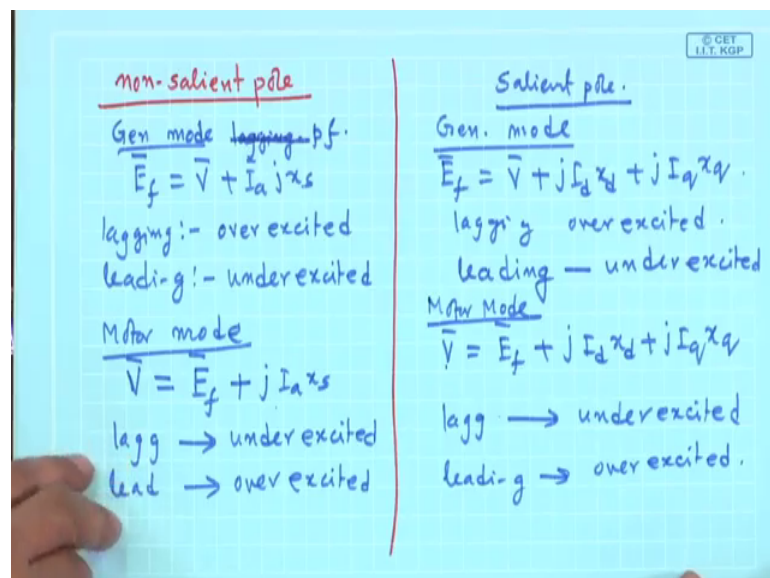 © CET
I.I.T. KGP
non-salient pole
Gen mode lagging pf.
Ēf = V̄ + Īa jxs
lagging:- over excited
leading:- under excited
Motor mode
V̄ = Ēf + j Ia xs
lagg → under excited
lead → over excited
Salient pole.
Gen. mode
Ēf = V̄ + j Id xd + j Iq xq.
lagging over excited.
leading — under excited
Motor Mode
V̄ = Ēf + j Id xd + j Iq xq
lagg → under excited
leading → over excited.